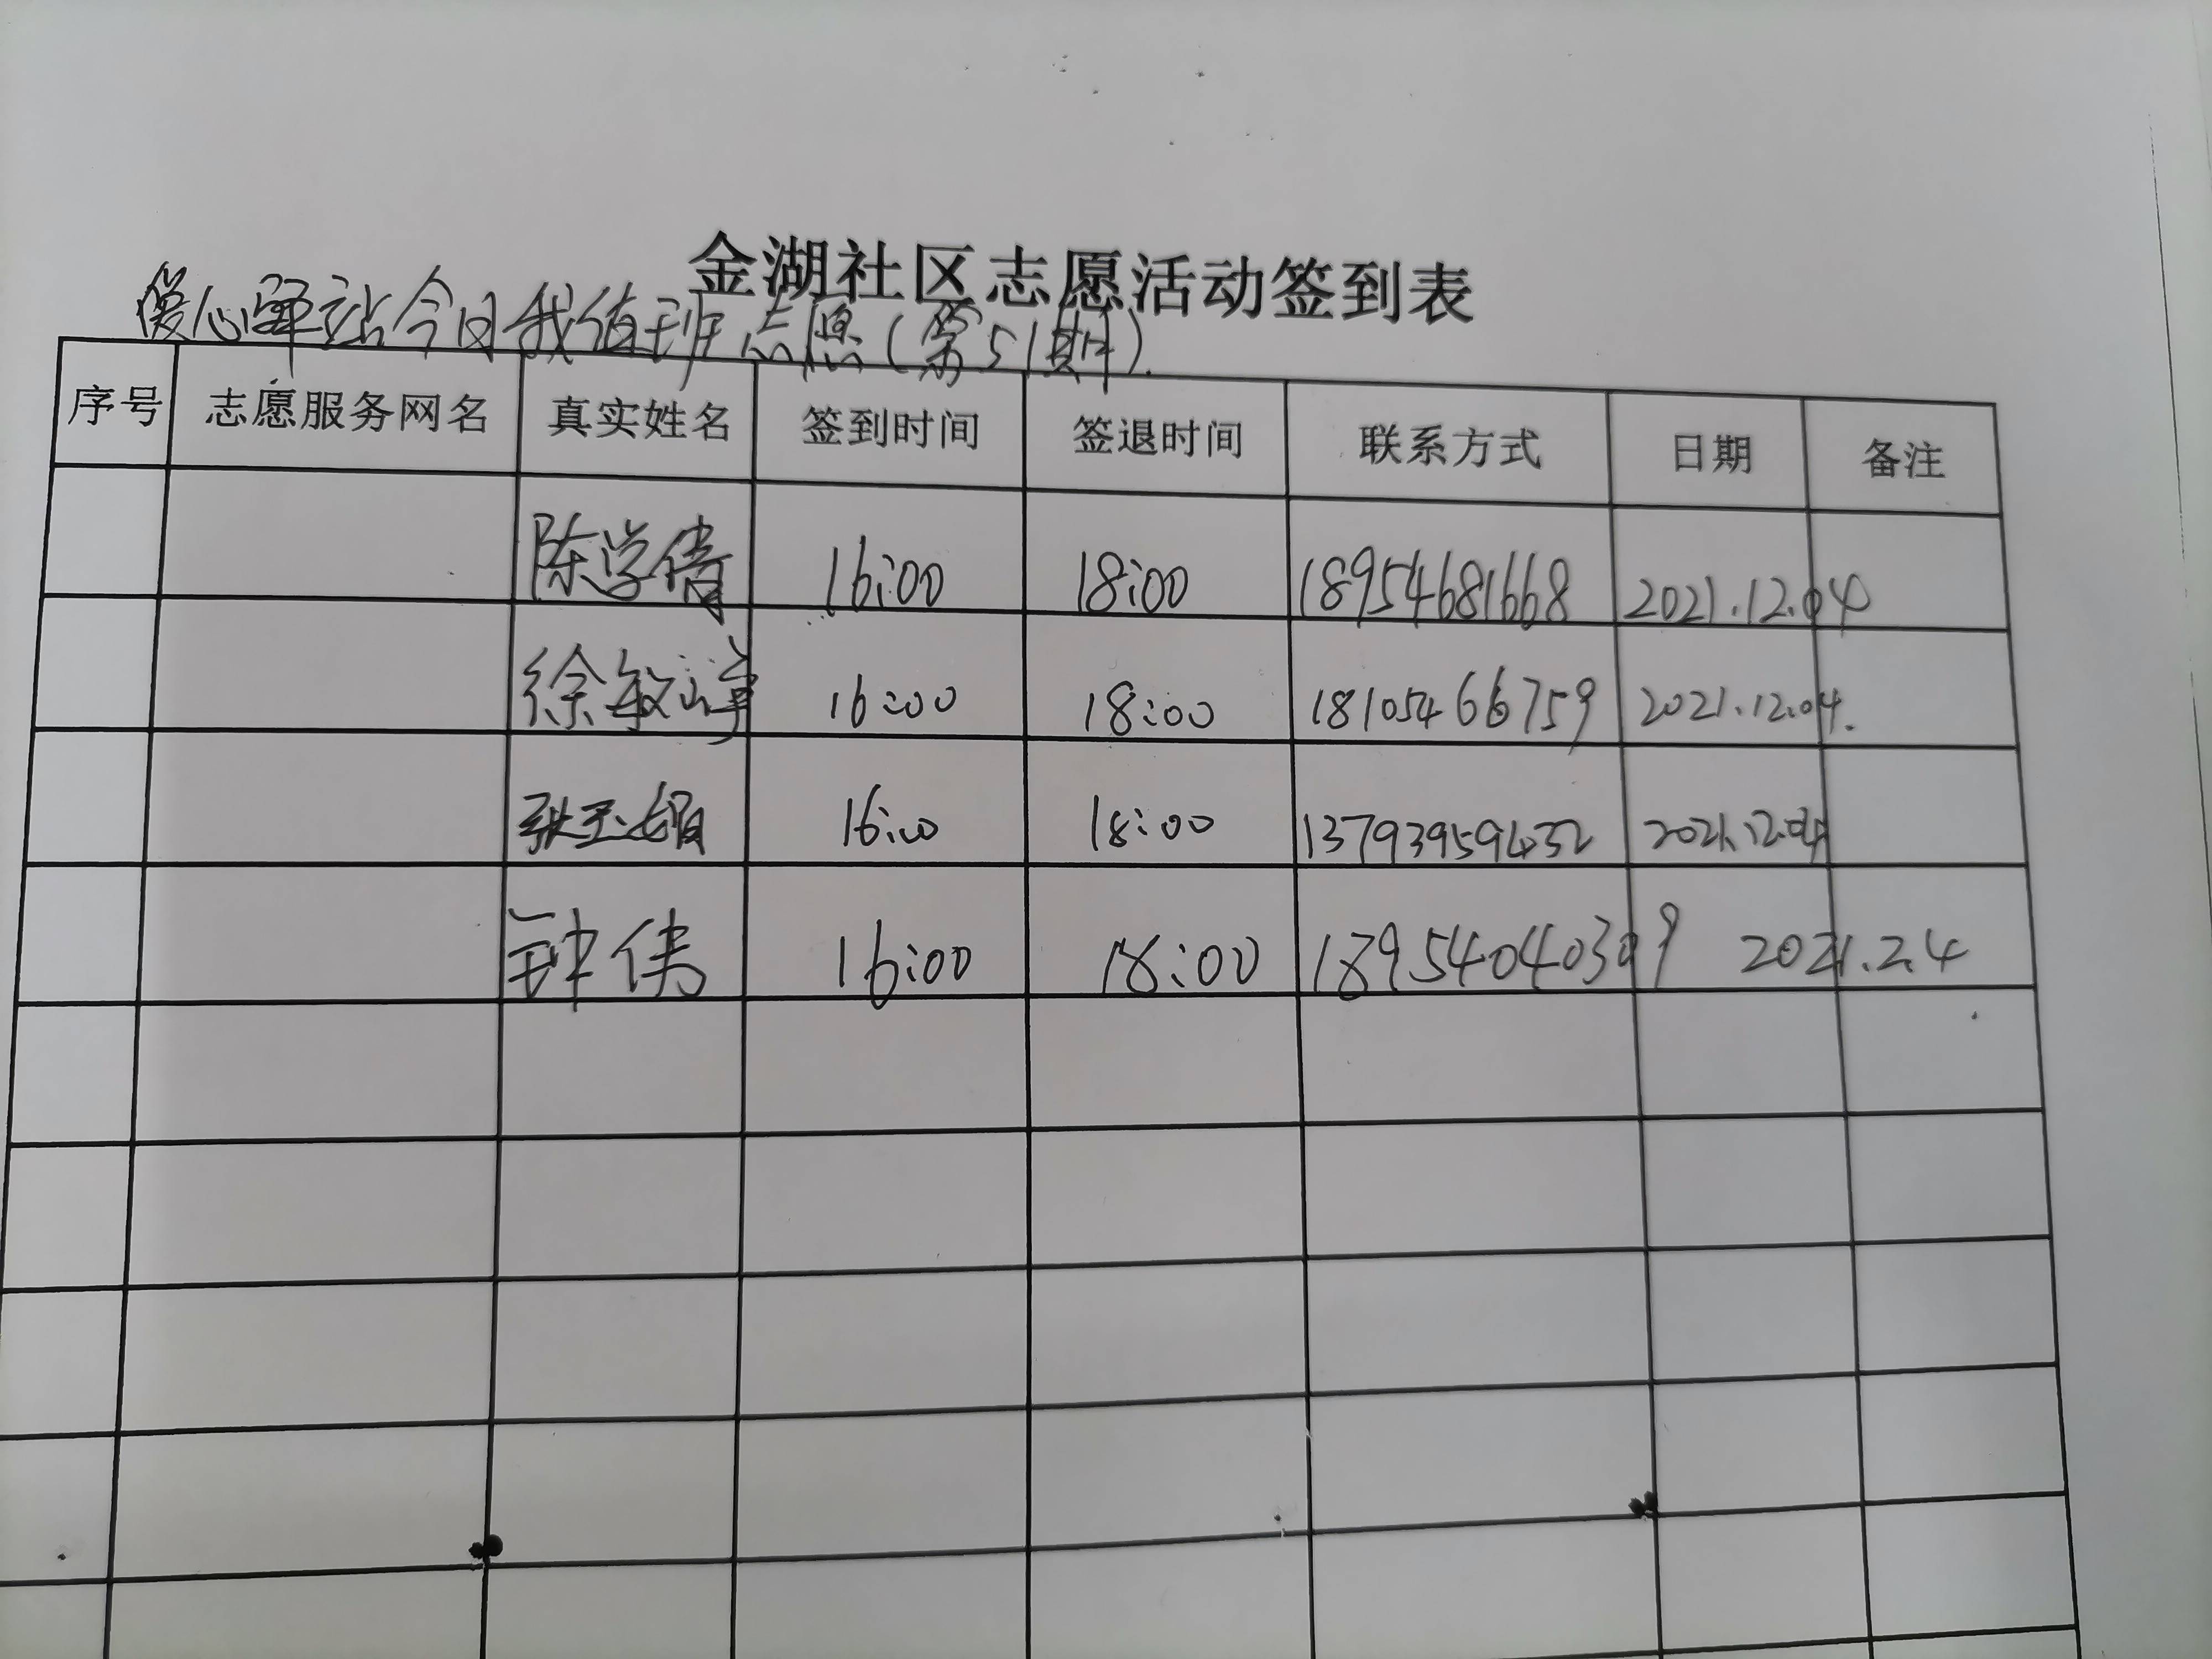 金湖社区志愿活动签到表
爱心驿站今日我值班志愿(第51期).
序号 志愿服务网名 真实姓名 签到时间 签退时间 联系方式 日期 备注
陈学倩 16:00 18:00 18954681668 2021.12.04
徐敏 16:00 18:00 18105466759 2021.12.04.
张玉娟 16:00 18:00 2021.12.04
钟伟 16:00 18:00 18954040309 2021.2.4